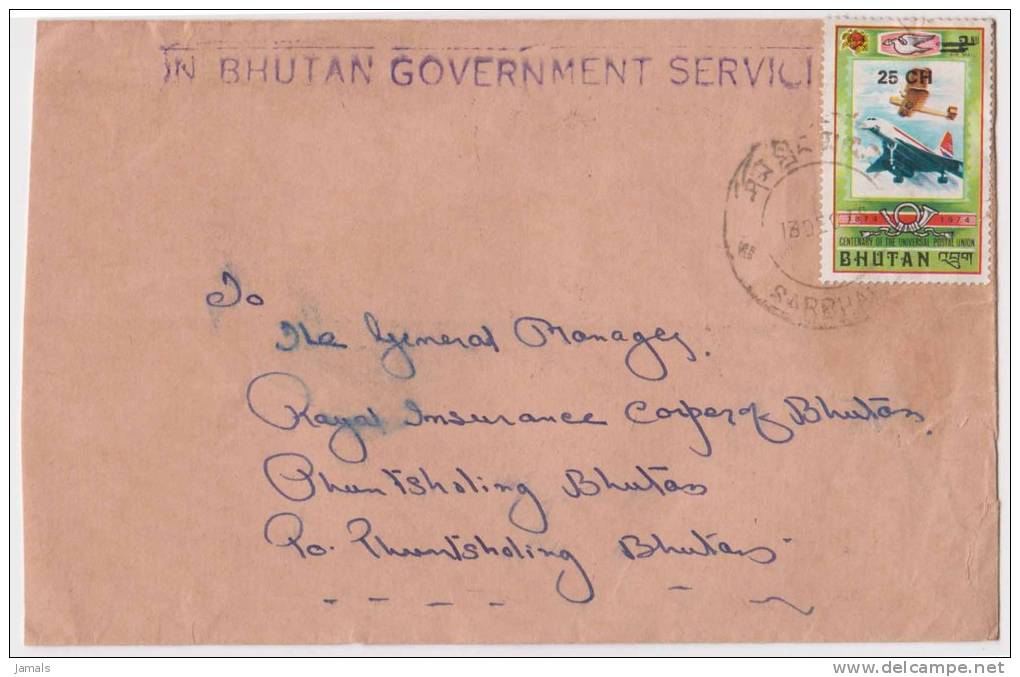 ON BHUTAN GOVERNMENT SERVICE
25 CH
1874 1974
CENTENARY OF THE UNIVERSAL POSTAL UNION
BHUTAN འབྲུག
13 DEC
SARBHA
To
The General Manager,
Royal Insurance Corper of Bhutan,
Phuntsholing Bhutan
Po. Phuntsholing Bhutan
Jamals
delcampe.net